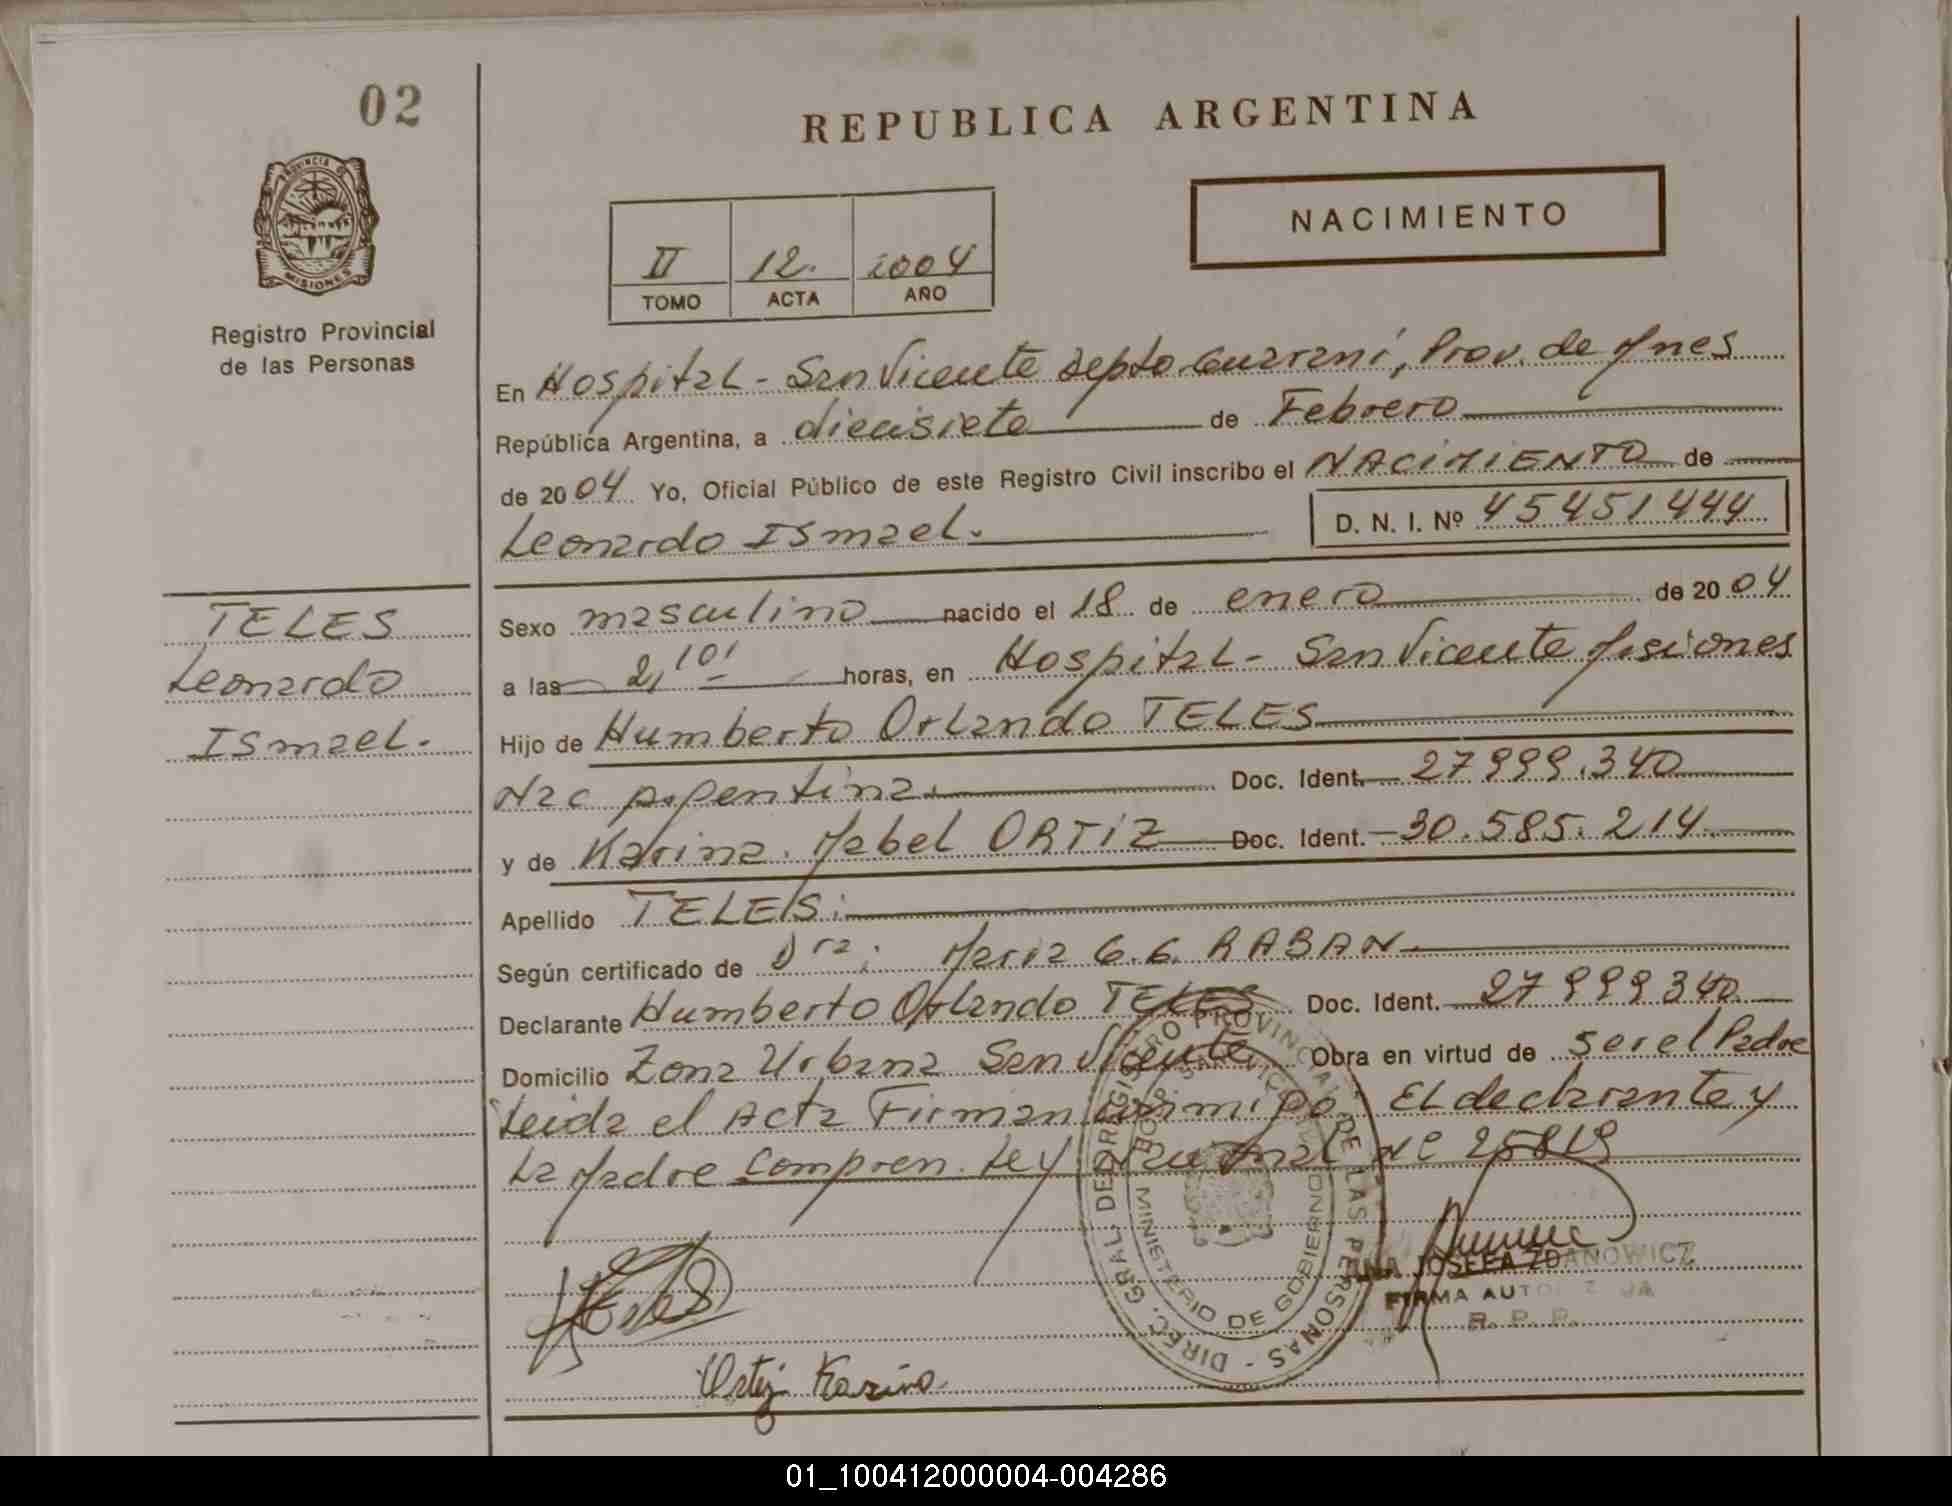 02
REPUBLICA ARGENTINA
NACIMIENTO
PROVINCIA DE
MISIONES
Registro Provincial
de las Personas
II 12. 2004
TOMO ACTA AÑO
En Hospital - San Vicente Depto Guarani, Prov. de Mnes
República Argentina, a diecisiete de Febrero
de 2004 Yo, Oficial Público de este Registro Civil inscribo el NACIMIENTO de
Leonardo Ismael. D. N. I. Nº 45451444
TELES
Leonardo
Ismael.
Sexo masculino nacido el 18 de enero de 2004
a las 2,10' horas, en Hospital - San Vicente Misiones
Hijo de Humberto Orlando TELES
Nac Argentina. Doc. Ident. 27999.340
y de Karina. Mabel ORTIZ Doc. Ident. 30.585.214
Apellido TELES.
Según certificado de Dra: Maria G. G. RABAN
Declarante Humberto Orlando TELES Doc. Ident. 27999340
Domicilio Zona Urbana San Vicente Obra en virtud de ser el Padre
Leida el Acta Firman El declarante y
La Madre Compren. Ley Nacional Nº 25819
DIREC. GRAL. DEL REGISTRO PROVINCIAL DE LAS PERSONAS
MINISTERIO DE GOBIERNO
Teles
Ortiz Karina
ANA JOSEFA ZDANOWICZ
FIRMA AUTORIZADA
R. P. P.
01_100412000004-004286